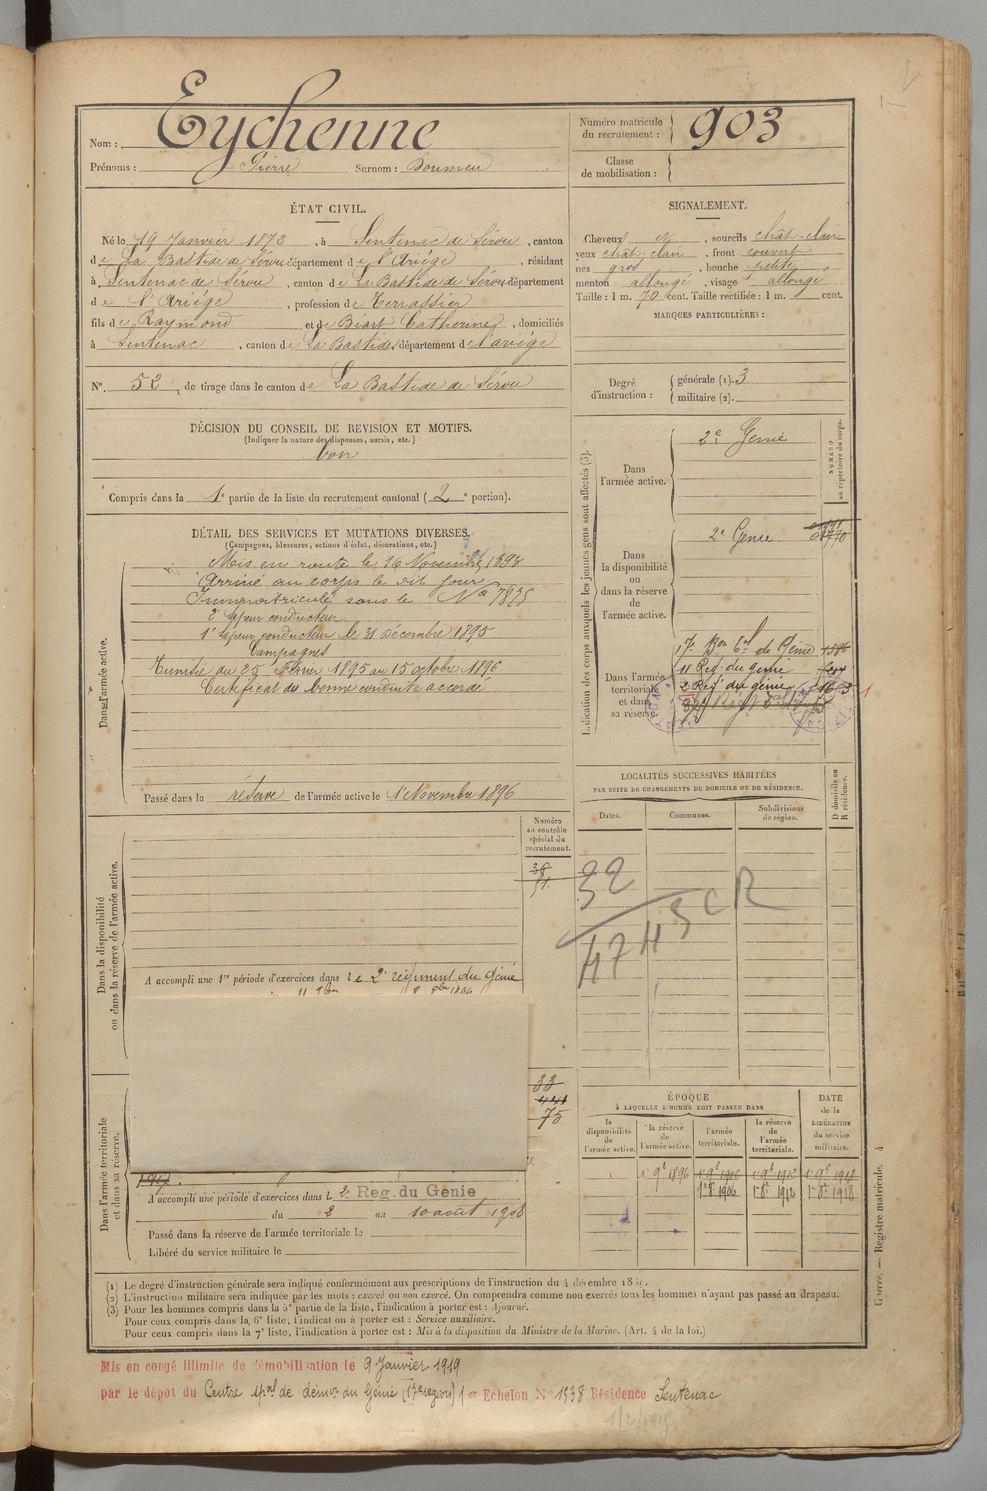 Nom : Eychenne
Prénoms : Pierre Surnom : Doumeu
Numéro matricule
du recrutement : 903
Classe
de mobilisation :
ÉTAT CIVIL.
Né le 19 Janvier 1873, à Sentenac de Sérou, canton
de La Bastide de Sérou, département de l'Ariége, résidant
à Sentenac de Sérou, canton de La Bastide de Sérou département
de l'Ariége, profession de Terrassier
fils de Raymond et de Biart Catherine, domiciliés
à Sentenac, canton de La Bastide, département de l'ariége
N° 52 de tirage dans le canton de La Bastide de Sérou
DÉCISION DU CONSEIL DE REVISION ET MOTIFS.
(Indiquer la nature des dispenses, sursis, etc.)
bon
Compris dans la 1e partie de la liste du recrutement cantonal (2e portion).
SIGNALEMENT.
Cheveux et, sourcils chât-clair
yeux chât-clair, front couvert
nez gros, bouche petite
menton allongé, visage allongé
Taille : 1 m. 70 cent. Taille rectifiée : 1 m. cent.
MARQUES PARTICULIÈRES :
Degré
d'instruction :
générale (1). 3
militaire (2).
Indication des corps auxquels les jeunes gens sont affectés (3).
NUMÉRO
au répertoire du corps.
Dans
l'armée active.
2e Génie
Dans
la disponibilité
ou
dans la réserve
de
l'armée active.
2e Génie
Dans l'armée
territoriale
et dans
sa réserve.
17e Bon Cal de Génie
11 Reg. du génie
2 Reg. du génie
DÉTAIL DES SERVICES ET MUTATIONS DIVERSES.
(Campagnes, blessures, actions d'éclat, décorations, etc.)
Dans l'armée active.
Mis en route le 16 Novembre 1894
Arrivé au corps le dit jour
Immatriculé sous le No 7835
2e Sapeur conducteur
1e Sapeur conducteur le 31 décembre 1895
Campagnes
Tunisie du 25 février 1895 au 15 octobre 1896
Certificat de bonne conduite accordé
Passé dans la réserve de l'armée active le 1 Novembre 1896
Numéro
au contrôle
spécial du
recrutement.
38
51
Dans la disponibilité
ou dans la réserve de l'armée active.
A accompli une 1re période d'exercices dans le 2e régiment du Génie
LOCALITÉS SUCCESSIVES HABITÉES
PAR SUITE DE CHANGEMENTS DE DOMICILE OU DE RÉSIDENCE.
D domicile ou
R résidence.
Dates.
Communes.
Subdivisions
de région.
32
47 H 3 CR
33
441
75
Dans l'armée territoriale
et dans sa réserve.
1907.
A accompli une période d'exercices dans l 2e Reg. du Génie
du 2 au 10 août 1908
Passé dans la réserve de l'armée territoriale le
Libéré du service militaire le
ÉPOQUE
À LAQUELLE L'HOMME DOIT PASSER DANS
DATE
de la
LIBÉRATION
du service
militaire.
la
disponibilité
de
l'armée active.
la réserve
de
l'armée active.
l'armée
territoriale.
la réserve
de
l'armée
territoriale.
1 9e 1896
1 9e 1918
1er 8e 1906
1er 8e 1912
1er 8e 1918
(1) Le degré d'instruction générale sera indiqué conformément aux prescriptions de l'instruction du 4 décembre 1889.
(2) L'instruction militaire sera indiquée par les mots : exercé ou non exercé. On comprendra comme non exercés tous les hommes n'ayant pas passé au drapeau.
(3) Pour les hommes compris dans la 5e partie de la liste, l'indication à porter est : Ajourné.
Pour ceux compris dans la 6e liste, l'indication à porter est : Service auxiliaire.
Pour ceux compris dans la 7e liste, l'indication à porter est : Mis à la disposition du Ministre de la Marine. (Art. 4 de la loi.)
Guerre. — Registre matricule. 4
Mis en congé illimité de démobilisation le 9 Janvier 1919
par le dépot du Centre spal de démon du Génie (17e région) 1er Echelon N° 1538 Résidence Sentenac